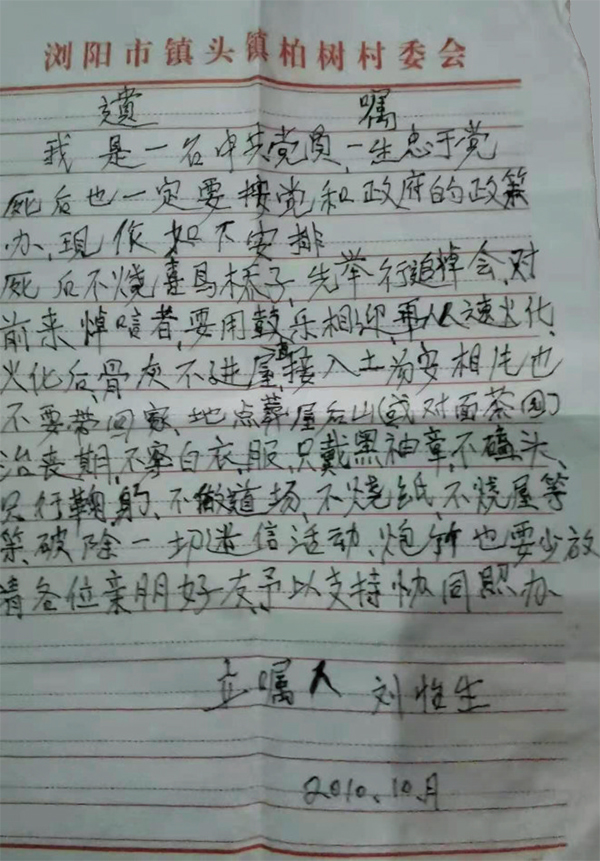 浏阳市镇头镇柏树村委会
遗 嘱
我是一名中共党员,一生忠于党
死后也一定要按党和政府的政策
办、现作如下安排
死后不烧喜鸟桥子、先举行追悼会、对
前来悼唁者、要用鼓乐相迎、再人速火化、
火化后、骨灰不进屋、直接入土为安相片也
不要带回家、地点葬屋后山(或对面茶园)
治丧期、不穿白衣服、只戴黑袖章、不磕头、
只行鞠躬、不做道场、不烧纸、不烧屋等
等、破除一切迷信活动、炮钟也要少放
请各位亲朋好友、予以支持协同照办、
立嘱人 刘性生
2010、10、月